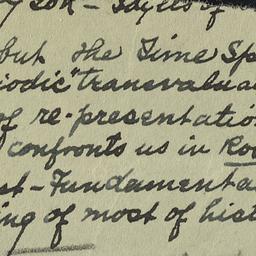 Idylls of
but the Time Sp
iodic" transvalua
of re-presentatio
confronts us in Ro
st-Fundamenta
ing of most of hist